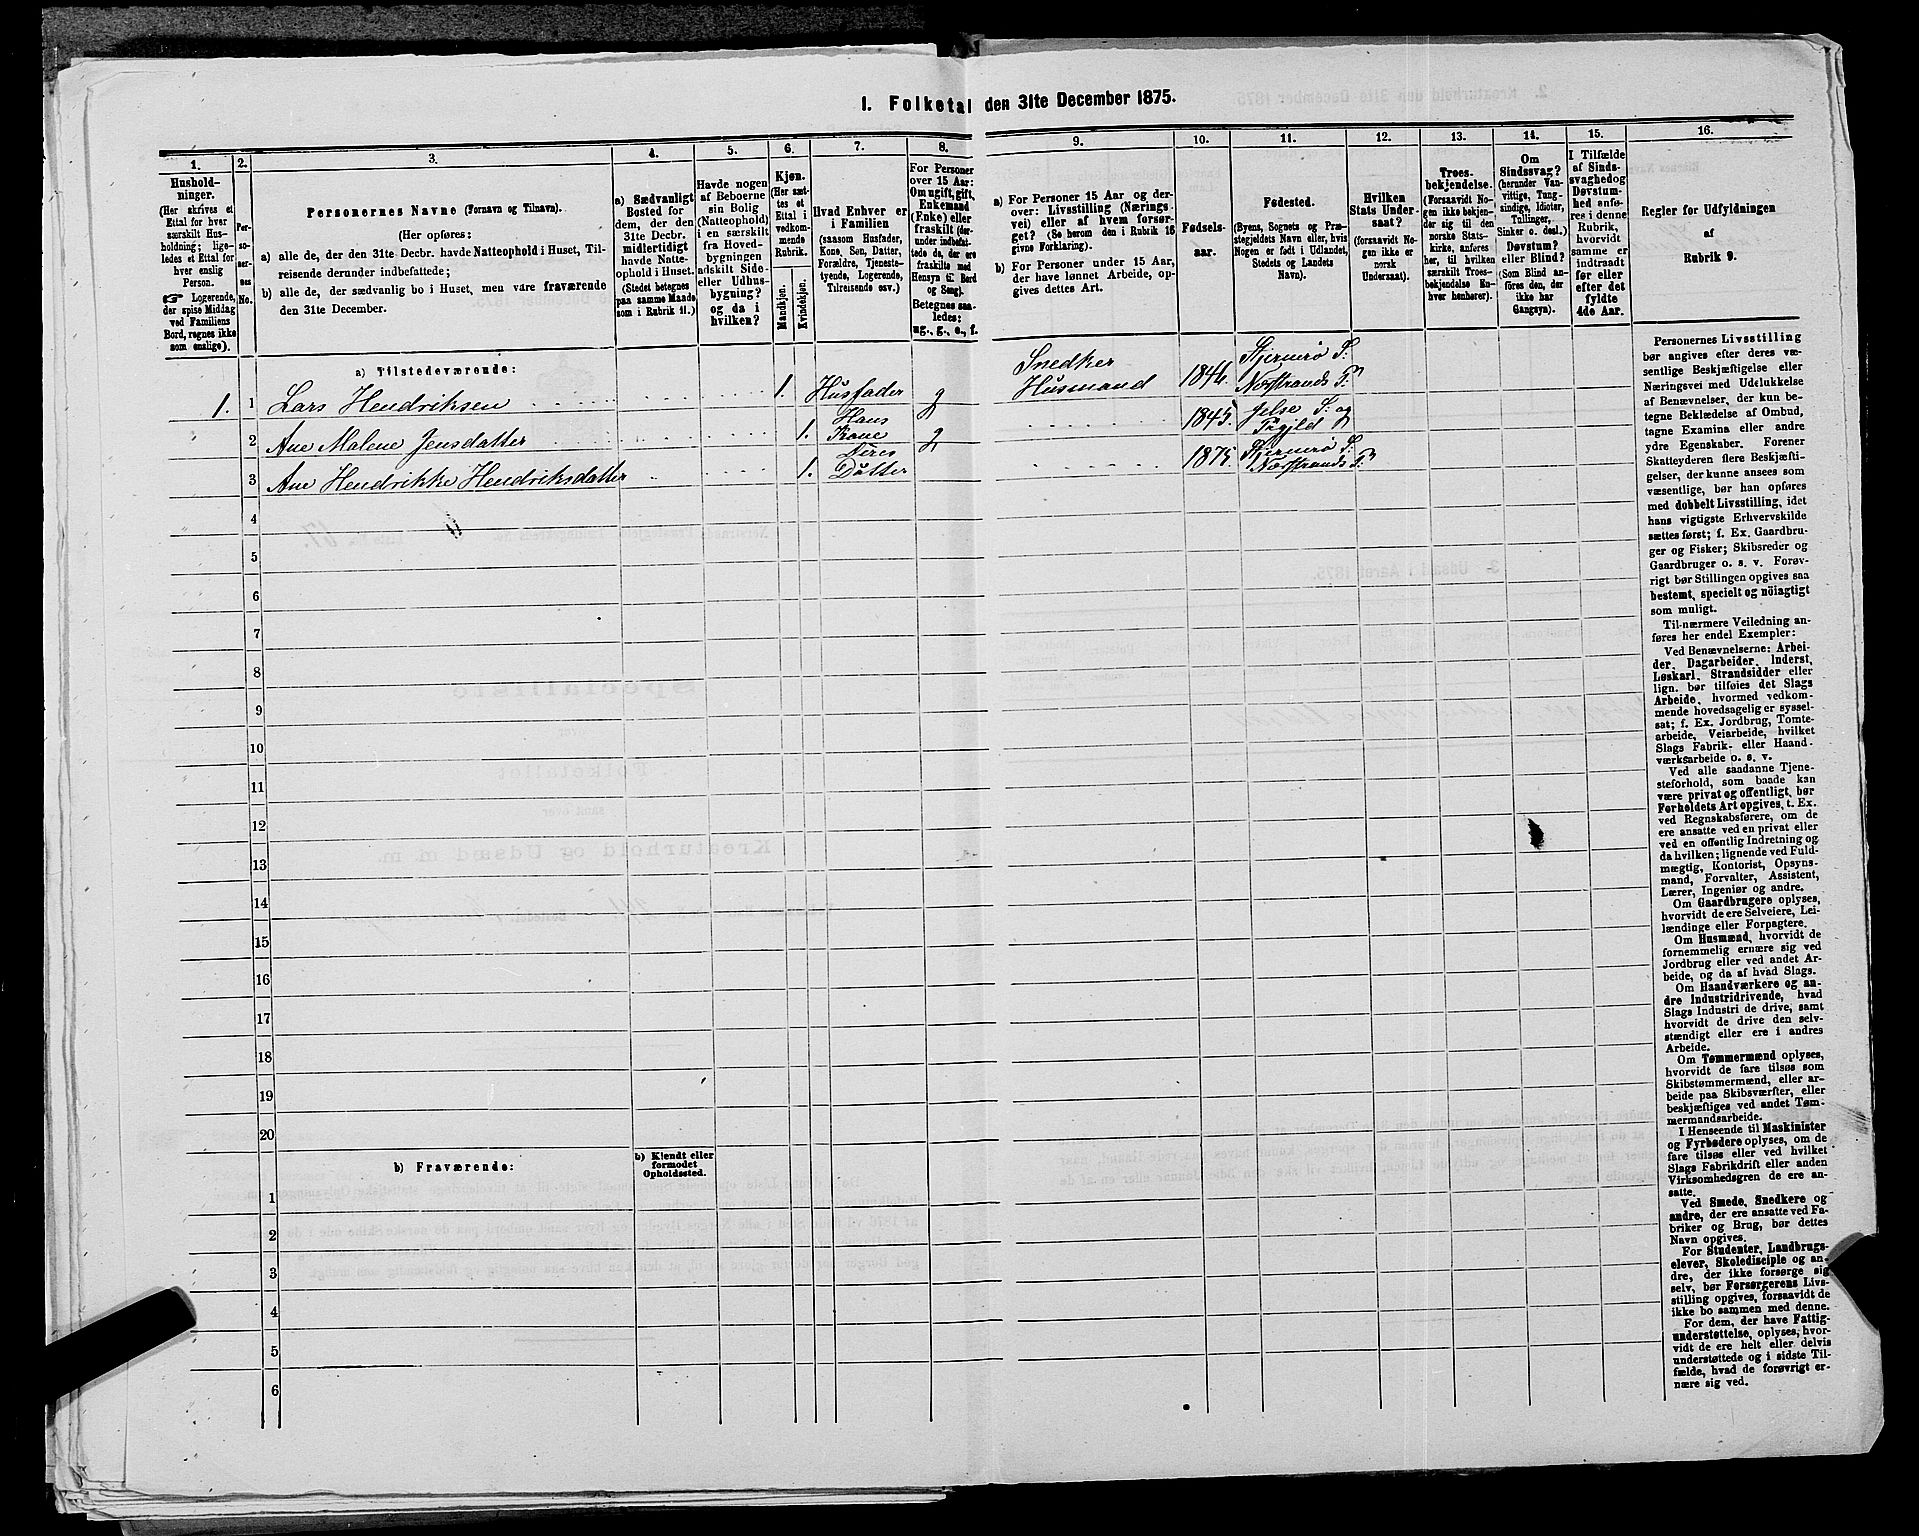 I. Folketal den 31te December 1875.
1.
Hushold-
ninger.
(Her skrives et
Ettal for hver
særskilt Hus-
holdning; lige-
ledes et Ettal for
hver enslig
Person.
☞ Logerende,
der spise Middag
ved Familiens
Bord, regnes ikke
som enslige).
2.
Per-
so-
ner-
nes
No.
3.
Personernes Navne (Fornavn og Tilnavn).
(Her opføres:
a) alle de, der den 31te Decbr. havde Natteophold i Huset, Til-
reisende derunder indbefattede;
b) alle de, der sædvanlig bo i Huset, men vare fraværende
den 31te December.
4.
a) Sædvanligt
Bosted for
dem, der den
31te Decbr.
midlertidigt
havde Natte-
ophold i Huset.
(Stedet betegnes
paa samme Maade
som i Rubrik 11.)
5.
Havde nogen
af Beboerne
sin Bolig
(Natteophold)
i en særskilt
fra Hoved-
bygningen
adskilt Side-
eller Udhus-
bygning?
og da i
hvilken?
6.
Kjøn.
(Her sæt-
tes et
Ettal i
vedkom-
mende
Rubrik.
Mandkjøn.
Kvindekjøn.
7.
Hvad Enhver er
i Familien
(saasom Husfader,
Kone, Søn, Datter,
Forældre, Tjeneste-
tyende, Logerende,
Tilreisende osv.)
8.
For Personer
over 15 Aar:
Om ugift, gift,
Enkemand
(Enke) eller
fraskilt (der-
under indbefat-
tede da, der ere
fraskilte med
Hensyn til Bord
og Seng).
Betegnes saa-
ledes:
ug., g., e., f.
9.
a) For Personer 15 Aar og der-
over: Livsstilling (Nærings-
vei) eller af hvem forsør-
get? (Se herom den i Rubrik 16
givne Forklaring).
b) For Personer under 15 Aar,
der have lønnet Arbeide, op-
gives dettes Art.
10.
Fødsels-
aar.
11.
Fødested.
(Byens, Sognets og Præ-
stegjeldets Navn eller, hvis
Nogen er født i Udlandet,
Stedets og Landets
Navn).
12.
Hvilken
Stats Under-
saat?
(forsaavidt No-
gen ikke er
norsk
Undersaat).
13.
Troes-
bekjendelse.
(Forsaavidt No-
gen ikke bekjen-
der sig til den
norske Stats-
kirke, anføres
her, til hvilken
særskilt Troes-
bekjendelse En-
hver henhører).
14.
Om
Sindssvag?
(herunder Van-
vittige, Tung-
sindige, Idioter,
Tullinger,
Sinker o. desl.)
Døvstum?
eller Blind?
(Som Blind an-
føres den, der
ikke har
Gangsyn).
15.
I Tilfælde
af Sinds-
svaghed og
Døvstum-
hed anfø-
res i denne
Rubrik,
hvorvidt
samme er
indtraadt
før eller
efter det
fyldte
4de Aar.
16.
Regler for Udfyldningen
af
Rubrik 9.
a) Tilstedeværende:
1. 1 Lars Hendriksen 1. Husfader g Snedker Husmand 1844. Stjernerö S: Næstrands P:
2 Ane Malene Jensdatter 1. Hans Kone g 1845. Jelse S: og P:gjeld
3 Ane Hendrikke Hendriksdatter 1. Deres Datter 1875. Stjernerö S: Næstrands P:
4
5
6
7
8
9
10
11
12
13
14
15
16
17
18
19
20
b) Fraværende:
b) Kjendt eller
formodet
Opholdssted.
1
2
3
4
5
6
Personernes Livsstilling
bør angives efter deres væ-
sentlige Beskjæftigelse eller
Næringsvei med Udelukkelse
af Benævnelser, der kun be-
tegne Beklædelse af Ombud,
tagne Examina eller andre
ydre Egenskaber. Forener
Skatteyderen flere Beskjæfti-
gelser, der kunne ansees som
væsentlige, bør han opføres
med dobbelt Livsstilling, idet
hans vigtigste Erhvervskilde
sættes først; f. Ex. Gaardbru-
ger og Fisker; Skibsreder og
Gaardbruger o. s. v. Forøv-
rigt bør Stillingen opgives saa
bestemt, specielt og nöiagtigt
som muligt.
Til nærmere Veiledning an-
føres her endel Exempler:
Ved Benævnelserne: Arbei-
der, Dagarbeider, Inderst,
Løskarl, Strandsidder eller
lign. bør tilføies det Slags
Arbeide, hvormed vedkom-
mende hovedsagelig er syssel-
sat; f. Ex. Jordbrug, Tomte-
arbeide, Veiarbeide, hvilket
Slags Fabrik- eller Haand-
værksarbeide o. s. v.
Ved alle saadanne Tjene-
steforhold, som baade kan
være privat og offentligt, bør
Forholdets Art opgives, t. Ex.
ved Regnskabsførere, om de
ere ansatte ved en privat eller
ved en offentlig Indretning og
da hvilken; lignende ved Fuld-
mægtig, Kontorist, Opsyns-
mand, Forvalter, Assistent,
Lærer, Ingeniør og andre.
Om Gaardbrugere oplyses,
hvorvidt de ere Selveiere, Lei-
lændinge eller Forpagtere.
Om Husmænd, hvorvidt de
fornemmelig ernære sig ved
Jordbrug eller ved andet Ar-
beide, og da af hvad Slags.
Om Haandværkere og an-
dre Industridrivende, hvad
Slags Industri de drive, samt
hvorvidt de drive den selv-
stændigt eller ere i andres
Arbeide.
Om Tømmermænd oplyses,
hvorvidt de fare tilsøs som
Skibstømmermænd, eller ar-
beide paa Skibsværfter, eller
beskjæftiges ved andet Tøm-
mermandsarbeide.
I Henseende til Maskinister
og Fyrbødere oplyses, om de
fare tilsøs eller ved hvilket
Slags Fabrikdrift eller anden
Virksomhedsgren de ere an-
satte.
Ved Smede, Snedkere og
andre, der ere ansatte ved Fa-
briker og Brug, bør dettes
Navn opgives.
For Studenter, Landbrugs-
elever, Skoledisciple og an-
dre, der ikke forsørge sig
selv, bør Forsørgerens Livs-
stilling opgives, forsaavidt de
ikke bo sammen med denne.
For dem, der have Fattig-
understøttelse, oplyses, hvor-
vidt de ere helt eller delvis
understøttede og i sidste Til-
fælde, hvad de forøvrigt er-
nære sig ved.